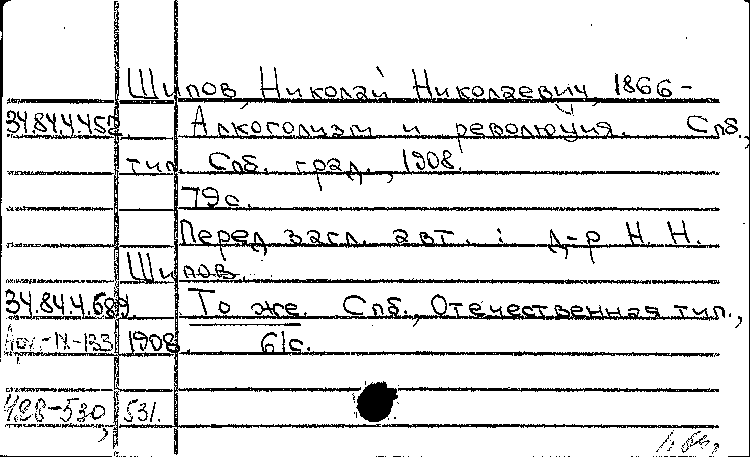 Шипов, Николай Николаевич, 1866-
34.84.4.452. Алкоголизм и революция. Спб.,
тип. Спб. град., 1908.
79с.
Перед загл. авт.: д-р Н. Н.
Шипов.
34.84.4.689. То же. Спб., Отечественная тип.,
1908. 61с.
428-530, 531.